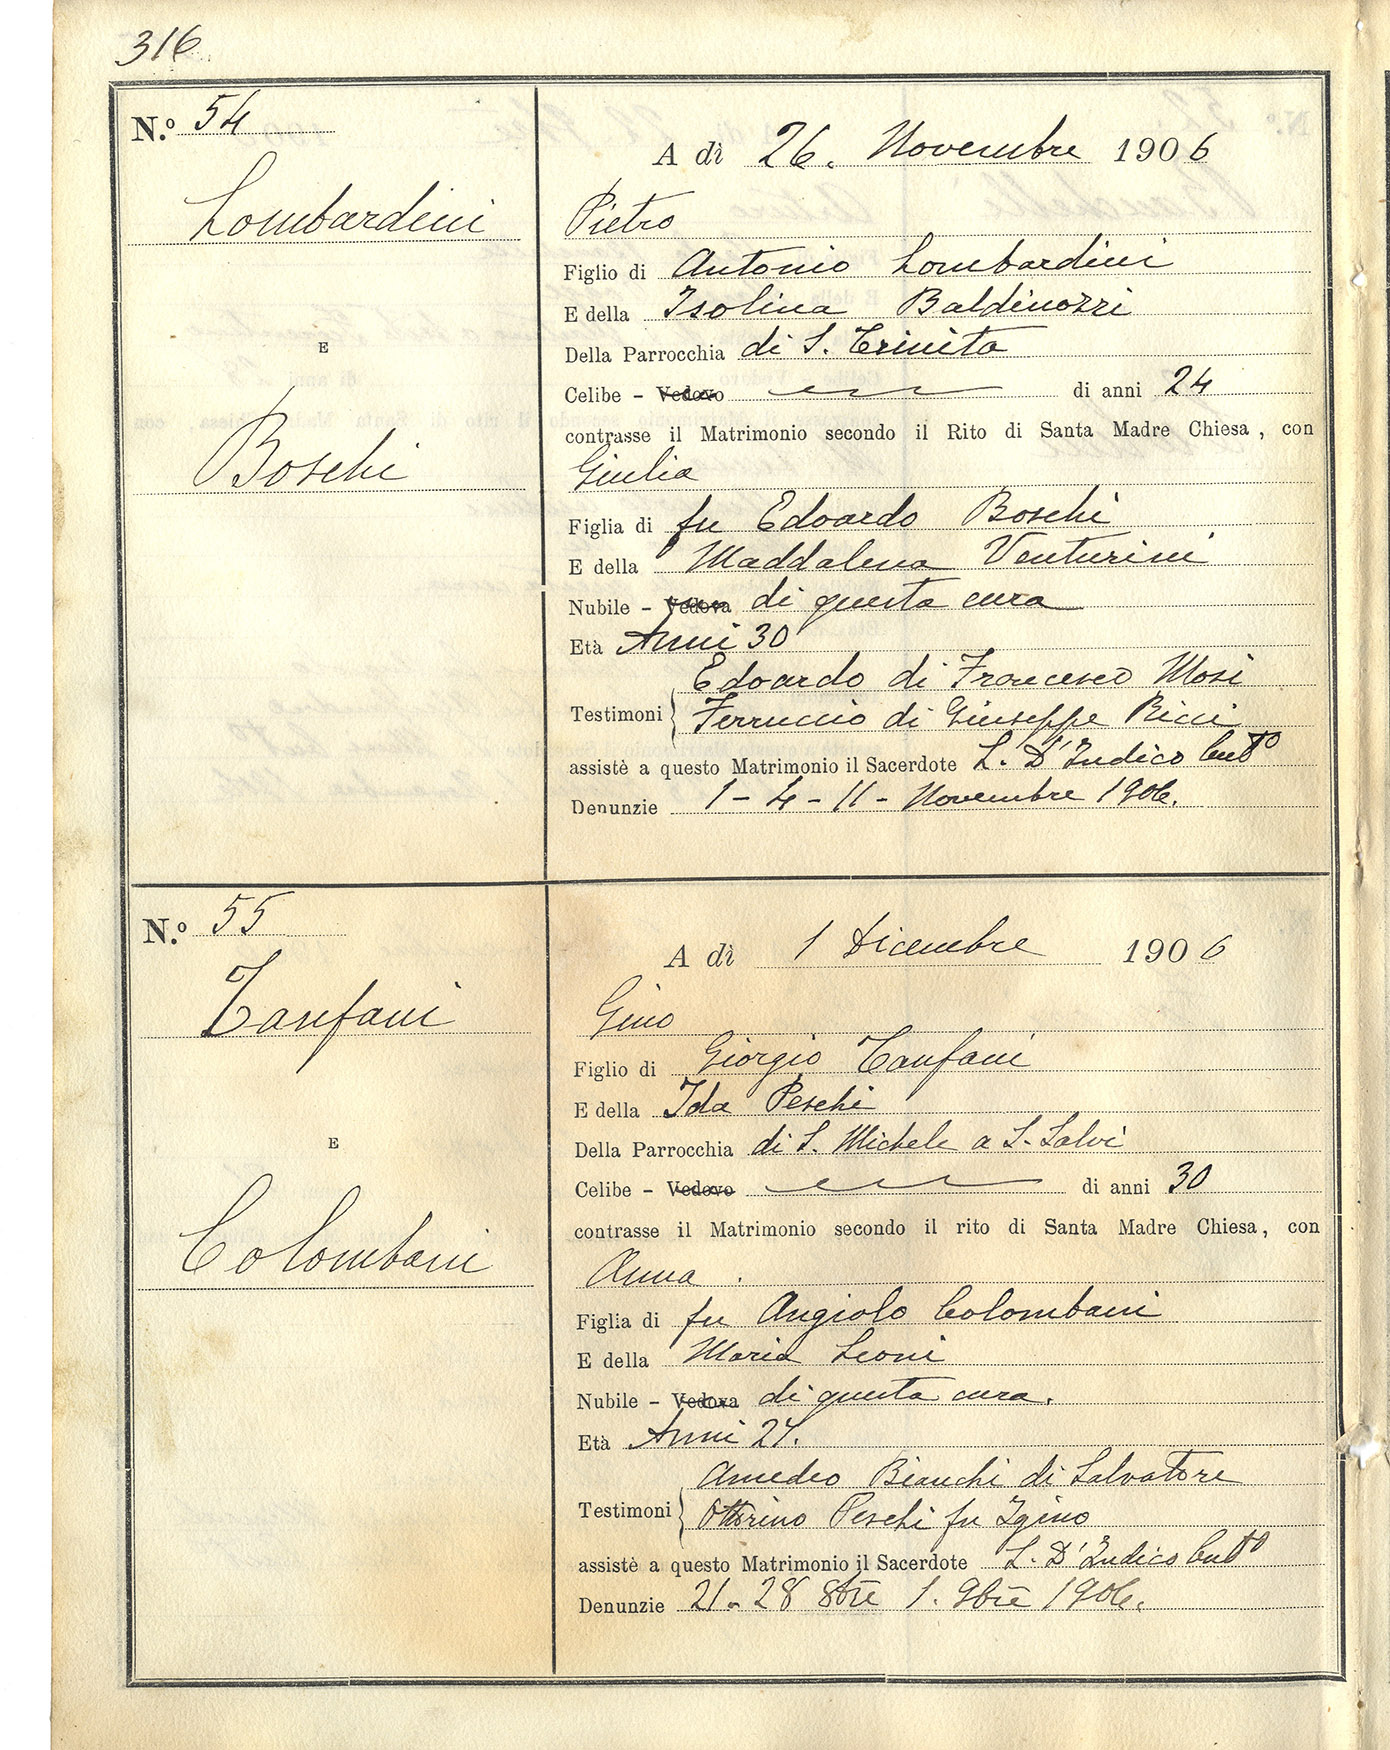 316
N.º 54
A dì 26. Novembre 1906
Lombardini
Pietro
Figlio di Antonio Lombardini
E della Isolina Baldinozzi
E
Della Parrocchia di S. Trinita
Celibe - Vedovo di anni 24
contrasse il Matrimonio secondo il Rito di Santa Madre Chiesa, con
Boschi
Giulia
Figlia di fu Edoardo Boschi
E della Maddalena Venturini
Nubile - Vedova di questa cura
Età Anni 30
Edoardo di Francesco Mosi
Testimoni
Ferruccio di Giuseppe Ricci
assistè a questo Matrimonio il Sacerdote L. D'Indico
Denunzie 1 - 4 - 11 - Novembre 1906.
N.º 55
A dì 1 Dicembre 1906
Tanfani
Gino
Figlio di Giorgio Tanfani
E della Ida Peschi
E
Della Parrocchia di S. Michele a S. Salvi
Celibe - Vedovo di anni 30
contrasse il Matrimonio secondo il rito di Santa Madre Chiesa, con
Colombani
Anna.
Figlia di fu Angiolo Colombani
E della Maria Leoni
Nubile - Vedova di questa cura.
Età Anni
Amedeo Bianchi di Salvatore
Testimoni
Ottorino Peschi fu Igino
assistè a questo Matrimonio il Sacerdote L. D'Indico
Denunzie 21 - 28 8bre 1. 9bre 1906.